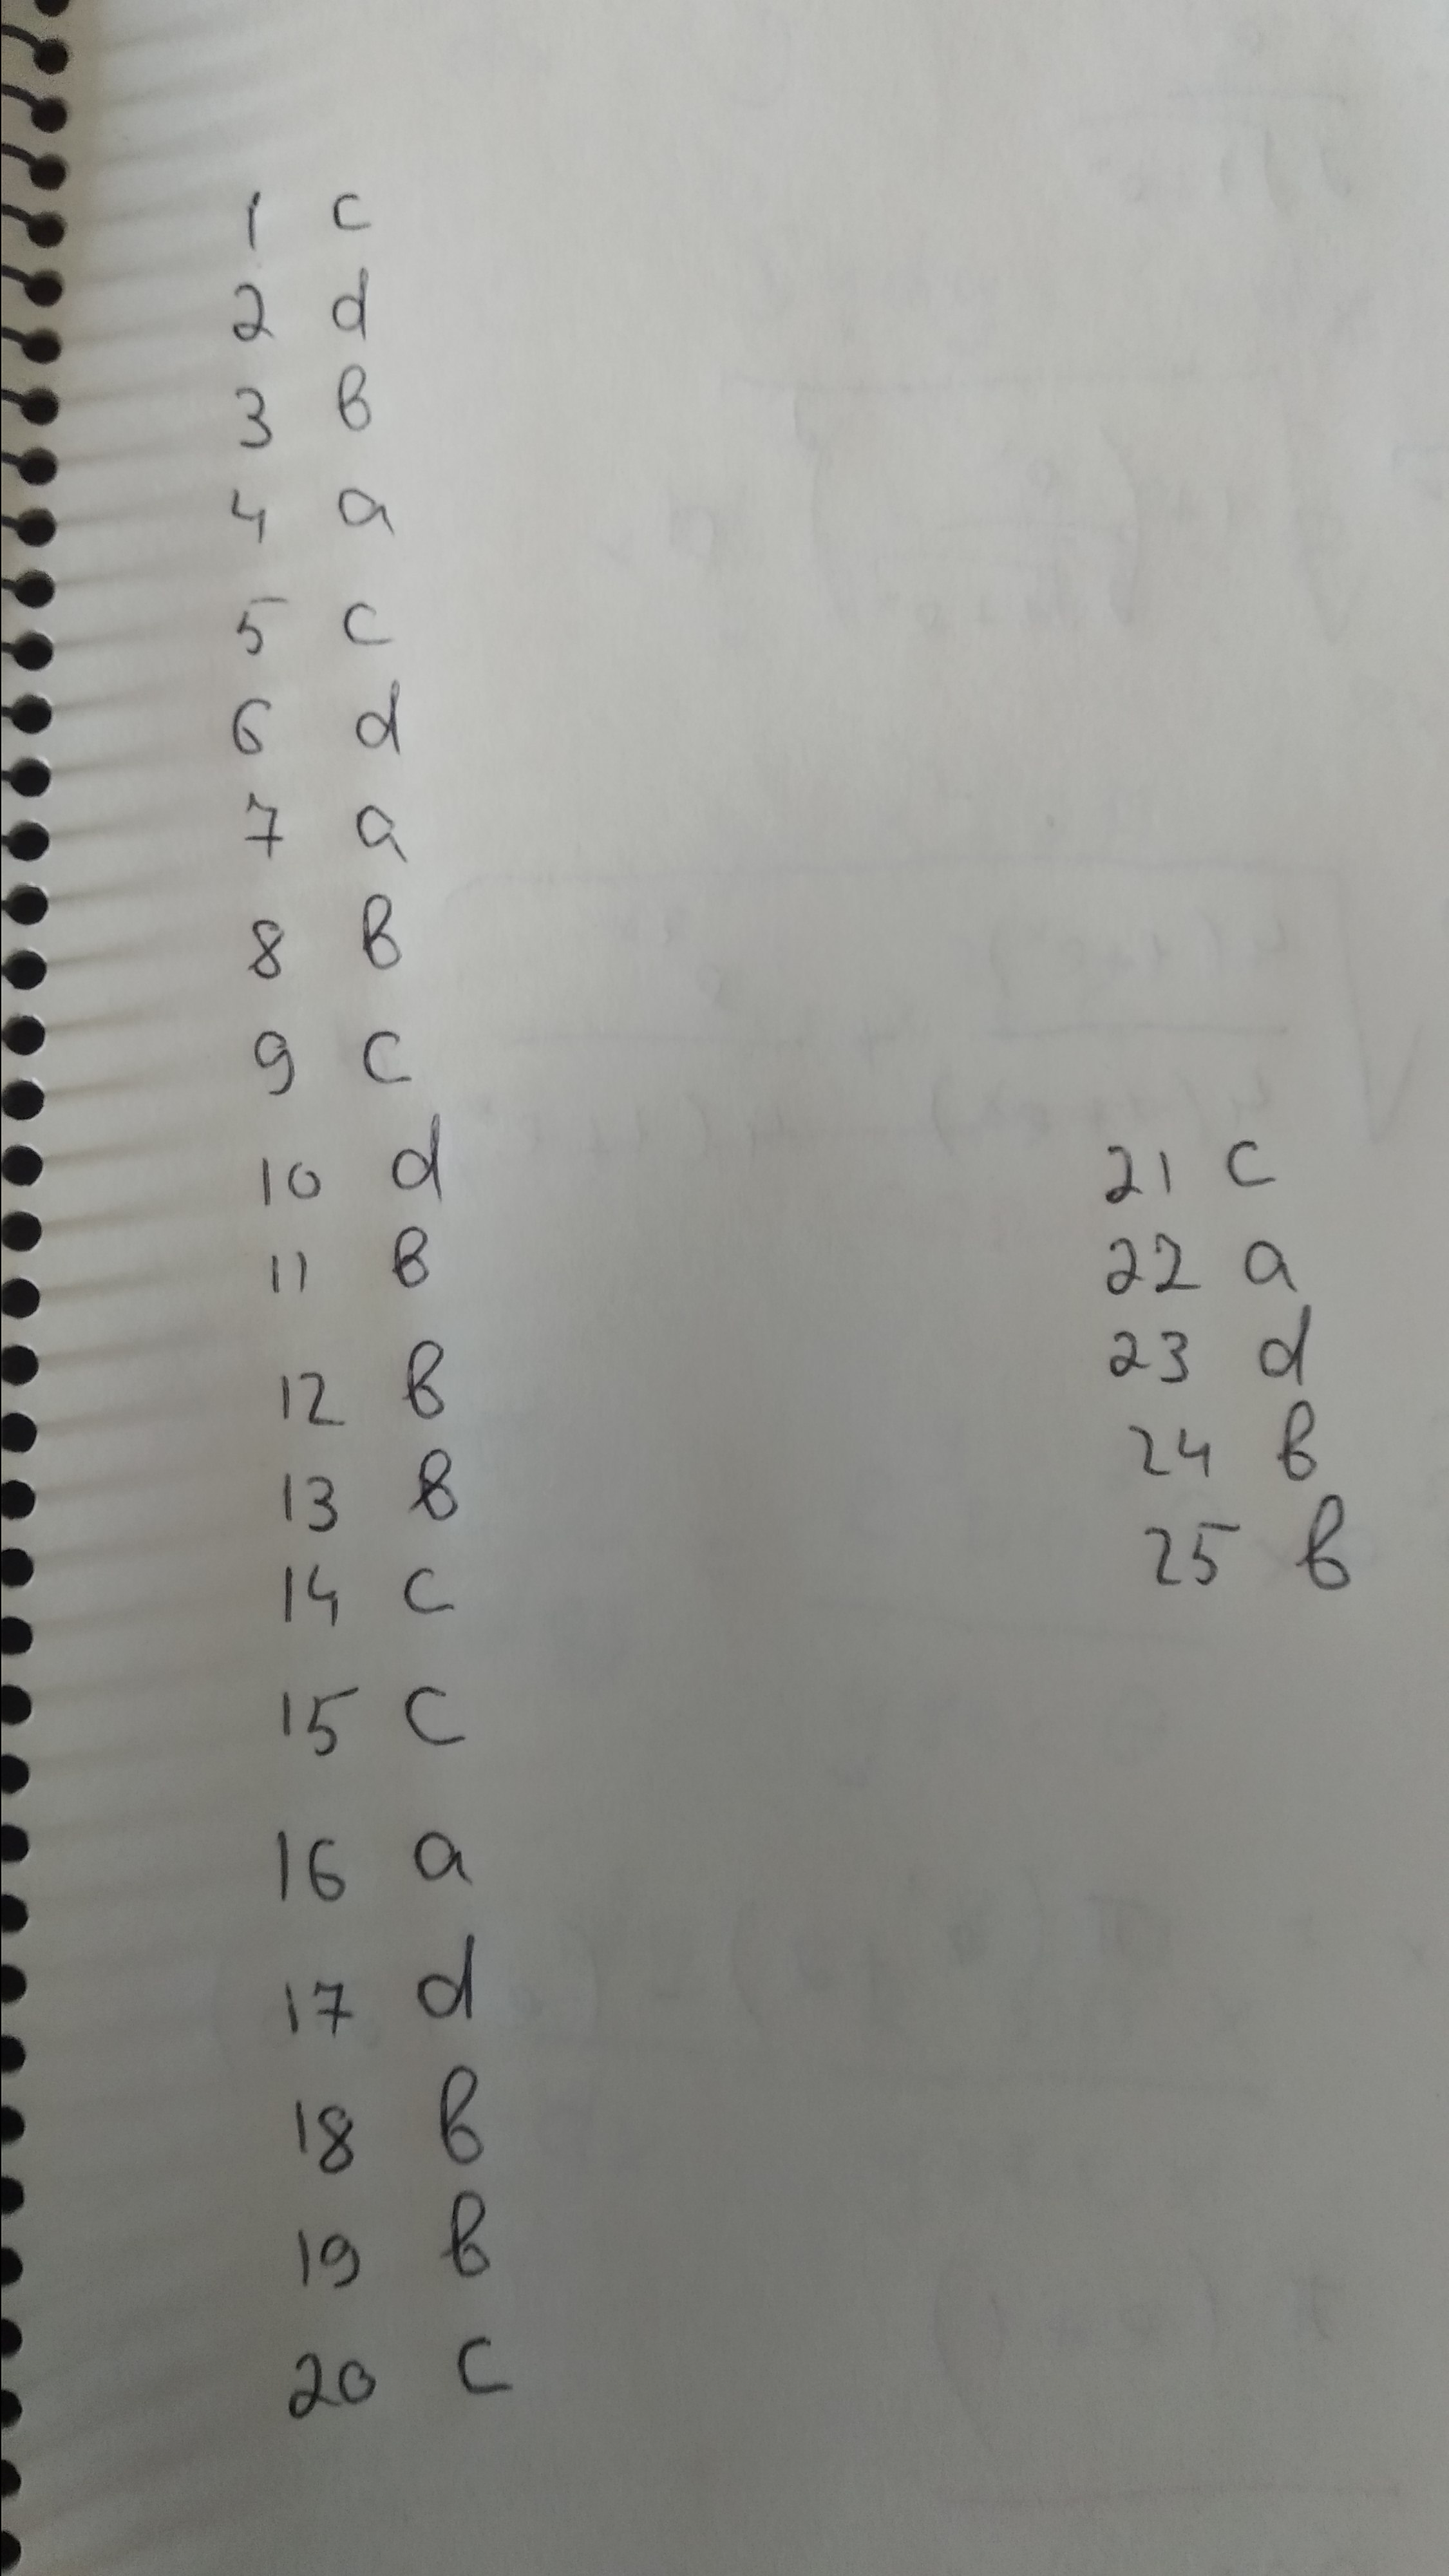 1 c
2 d
3 b
4 a
5 c
6 d
7 a
8 b
9 c
10 d
11 b
12 b
13 b
14 c
15 c
16 a
17 d
18 b
19 b
20 c
21 c
22 a
23 d
24 b
25 b